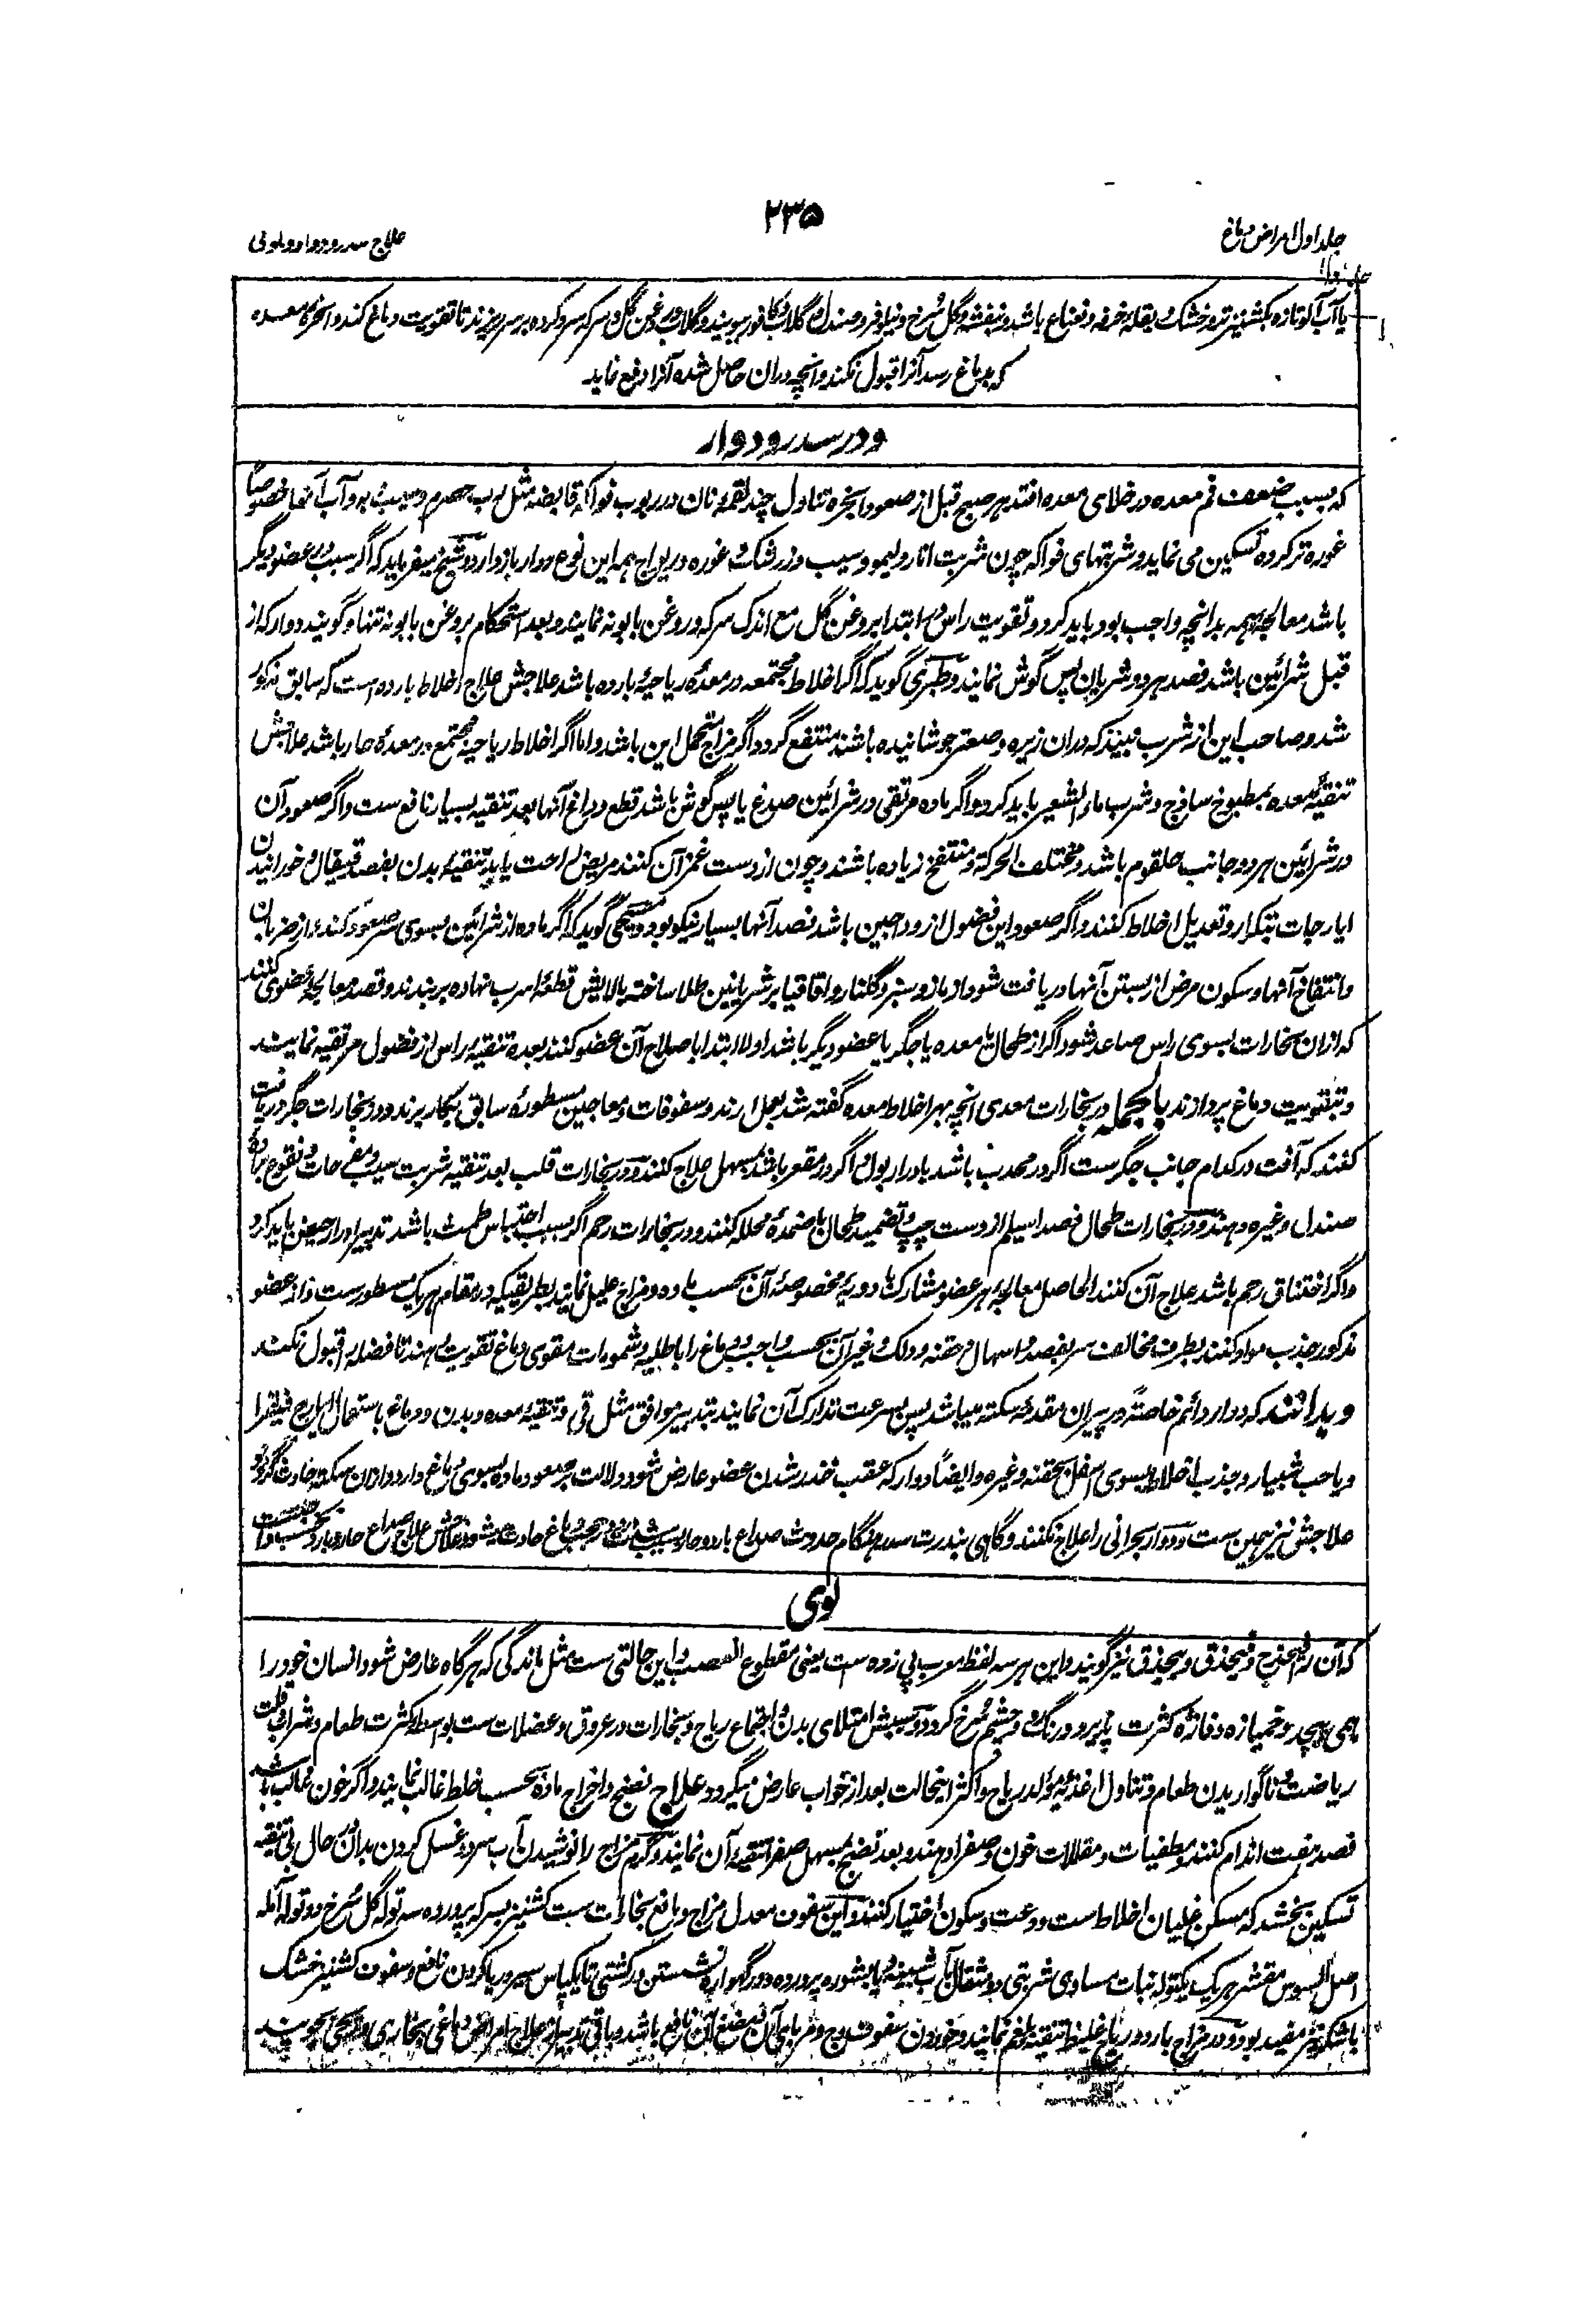 جلد اول امراض دماغ
۲۳۵
علاج سدر و دوار و لوی
یا آب آلو تازه بکشنیز تر و خشک و بقله خرفه و نعناع باشد و بنفشه و گل سرخ و نیلوفر و صندل و گلاب و کافور ببویند و گلاب و روغن گل و سرکه سرد کرده بر سر ریزند تا تقویت دماغ کند و ابخره معده
که بدماغ رسد آنرا قبول نکند و آنچه دران حاصل شده آنرا دفع نماید
و در سدر و دوار
که بسبب ضعف فم معده در خلای معده افتد هر صبح قبل از صعود ابخره تناول چند لقمه نان در ربوب فواکه قابضه مثل رب حصرم و سیب و به و آب آنها خصوصاً
غوره تر کرده تسکین می نماید و شربتهای فواکه چون شربت انار و لیمو و سیب و زرشک و غوره و ریواج همه این نوع دوار باز دارد و شیخ میفرماید که اگر سبب در عضو دیگر
باشد معالجه همه بدانچه واجب بود باید کرد و تقویت راس در ابتدا بروغن گل مع اندک سرکه و روغن بابونه نمایند و بعد استحکام بروغن بابونه تنها و گویند دوار که از
قبل شرائین باشد فصد هر دو شریان پس گوش نمایند و طبری گوید که اگر اخلاط مجتمعه در معده ریاحیه بارده باشد علاجش علاج اخلاط بارده است که سابق مذکور
شد و صاحب این از شرب نبیذ که دران زیره و صعتر جوشانیده باشند منتفع گردد اگر مزاج متحمل این باشد و اما اگر اخلاط ریاحیه مجتمع در معده حار باشد علاجش
تنقیه معده بمطبوخ ساذج و شرب ماء الشعیر باید کرد و اگر ماده مرتقی در شرائین صدغ یا پس گوش باشد قطع و داغ آنها بعد تنقیه بسیار نافع ست و اگر صعود آن
در شرائین هر دو جانب حلقوم باشد و مختلف الحرکة و منتفخ زیاده باشند و چون از دست غمز آن کنند مریض راحت یابد تنقیه بدن بفصد قیفال و خورانیدن
ایارجات بتکرار و تعدیل اخلاط کنند و اگر صعود این فضول از رود اجبین باشد فصد آنها بسیار نیکو بود و مسیحی گوید که اگر ماده از شرائین بسوی سر صعود کند و از ضربان
و انتفاخ آنها و سکون مرض از بستن آنها دریافت شود از مازو سبز و گلنار و اقاقیا بر شریانین طلا ساخته بالایش قطعه اسرب نهاده بر بندند و قصد معالجه عضوی کنند
که ازان بخارات بسوی راس صاعد شود اگر از طحال یا معده یا جگر یا عضو دیگر باشد اولا ابتدا باصلاح آن عضو کنند بعده تنقیه راس از فضول مرتقیه نمایند
و بتقویت دماغ پردازند بالجمله در بخارات معدی آنچه بهر اخلاط معده گفته شد بعمل آرند و سفوفات و معاجین مسطوره سابق بکار برند و در بخارات جگر دریافت
کنند که آفت در کدام جانب جگر ست اگر در محدب باشد بادرار بول و اگر در مقعر باشد بمسهل علاج کنند و در بخارات قلب بعد تنقیه شربت سیب و مفرحات و نقوع براده
صندل و غیره دهند و در بخارات طحال فصد اسیلم از دست چپ و تضمید طحال باضمده محلله کنند و در بخارات رحم اگر بسبب احتباس طمث باشد تدبیر ادرار حیض باید کرد
و اگر اختناق رحم باشد علاج آن کنند الحاصل معالجه هر عضو مشارک بادویه مخصوصه آن بحسب ماده و مزاج علیل نمایند بطریقیکه در مقام هر یک مسطورست و از عضو
مذکور جذب مواد کنند بطرف مخالف سر بفصد و اسهال و حقنه و دلک و غیر آن بحسب واجب و دماغ را باطلیه و شمومات مقوی دماغ تقویت دهند تا فضله را قبول نکند
و بدانند که دوار دائم خاصةً در پیران مقدمه سکته میباشد پس بسرعت تدارک آن نمایند بتدبیر موافق مثل قی و تنقیه معده و بدن و دماغ باستعمال ایارج فیقرا
و یا حب شبیار و جذب اخلاط بسوی اسفل بحقنه و غیره و ایضاً دوار که عقب خدر شدن عضو عارض شود دلالت بر صعود ماده بسوی دماغ دارد و ازان سکته حادث گردد و
علاجش نیز همین ست و دوار بحرانی را علاج نکنند و گاهی بندرت سدر هنگام حدوث صداع بارد و حار حادث میشود و علاجش علاج صداع حار و بارد ست
لوی
که آن را و فیحذق و بیحذق نیز گویند و این هر سه لفظ معرب پی زده ست یعنی مقطوع العصب و این حالتی ست مثل ماندگی که هرگاه عارض شود انسان خود را
همی پیچد و خمیازه و فاژه کثرت پذیرد و رنگ رو و چشم سرخ گردد و سببش امتلای بدن و اجتماع ریاح و بخارات در عروق و عضلات ست بواسطه کثرت طعام و شراب و قلت
ریاضت و ناگواریدن طعام و تناول اغذیه مولد ریاح و اکثر اینحالت بعد از خواب عارض میگردد علاج نضج و اخراج ماده بحسب خلط غالب نمایند و اگر خون غالب باشد
فصد هفت اندام کنند و مطفیات و مقللات خون و صفرا دهند و بعد نضج بمسهل صفرا تنقیه آن نمایند و گرم مزاج را نوشیدن آب سرد و غسل کردن بدان در حال بی تنقیه
تسکین بخشد که مسکن غلیان اخلاط ست و دعت و سکون اختیار کنند و این سفوف معدل مزاج و مانع بخارات ست کشنیز بسرکه پرورده سه توله گل سرخ دو توله آمله
اصل السوس مقشر هر یک یکتوله نبات مساوی شربتی دو مثقال بآب شبینه و پاشویه پرورده و در گهواره نشستن و در کشتی تا یکپاس سیر دریا کردن نافع و سفوف کشنیز خشک
باشکر نیز مفید بود و در مزاج بارد و ریاح غلیظ تنقیه بلغم نمایند و خوردن سفوف و مربای آن نافع باشد و باقی تدبیر از علاج امراض دماغی بخاری و ریحی جویند